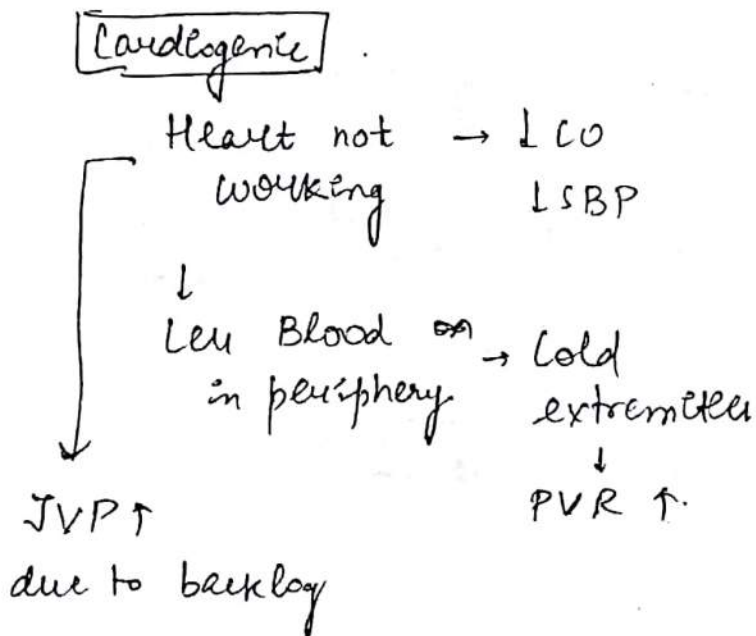 Cardiogenic
Heart not → ↓ CO
working ↓ SBP
↓
Less Blood
in periphery → Cold
extremities
↓
PVR ↑.
JVP ↑
due to backlog